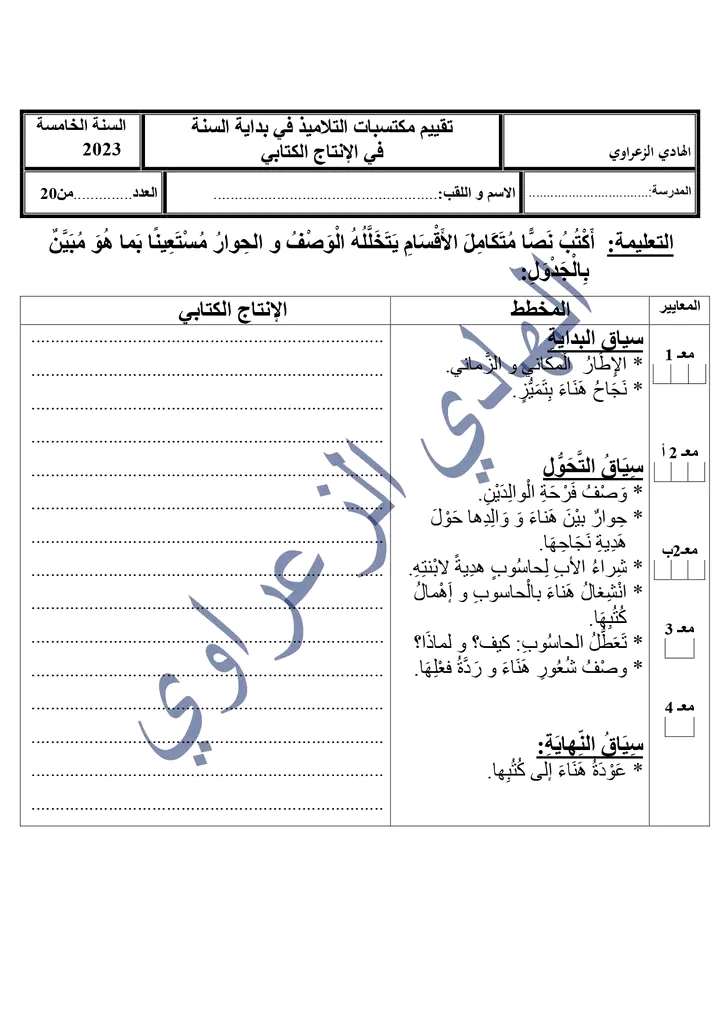 الهادي الزعراوي
تقييم مكتسبات التلاميذ في بداية السنة
في الإنتاج الكتابي
السنة الخامسة
2023
المدرسة:..............................
الاسم و اللقب:..........................................
العدد..............من20
التعليمة: أَكْتُبُ نَصًّا مُتَكَامِلَ الأَقْسَامِ يَتَخَلَّلُهُ الْوَصْفُ و الحِوارُ مُسْتَعِينًا بَما هُوَ مُبَيَّنٌ
بِالْجَدْوَلِ:
المعايير
المخطط
الإنتاج الكتابي
معـ 1
معـ 2 أ
معـ2ب
معـ 3
معـ 4
سياق البداية
* الإِطَارُ الْمكَاني و الزَّماني.
* نَجَاحُ هَنَاءَ بِتَمَيُّزٍ.
سِيَاقُ التَّحَوُّلِ
* وَصْفُ فَرْحَةِ الْوالِدَيْنِ.
* حِوارٌ بيْنَ هَناءَ وَ وَالِدِها حَوْلَ
هَدِيةِ نَجَاحِهَا.
* شِراءُ الأبِ لِحاسُوبٍ هدِيةً لابْنتِهِ.
* انْشِغالُ هَناءَ بالْحاسوبِ و إَهْمالُ
كُتُبِهَا.
* تَعَطُّلُ الحاسُوبِ: كيف؟ و لماذَا؟
* وصْفُ شُعُورِ هَنَاءَ و رَدَّةُ فعْلِهَا.
سِيَاقُ النِّهايَةِ:
* عَوْدَةُ هَنَاءَ إلى كُتُبِها.
الهادي الزعراوي